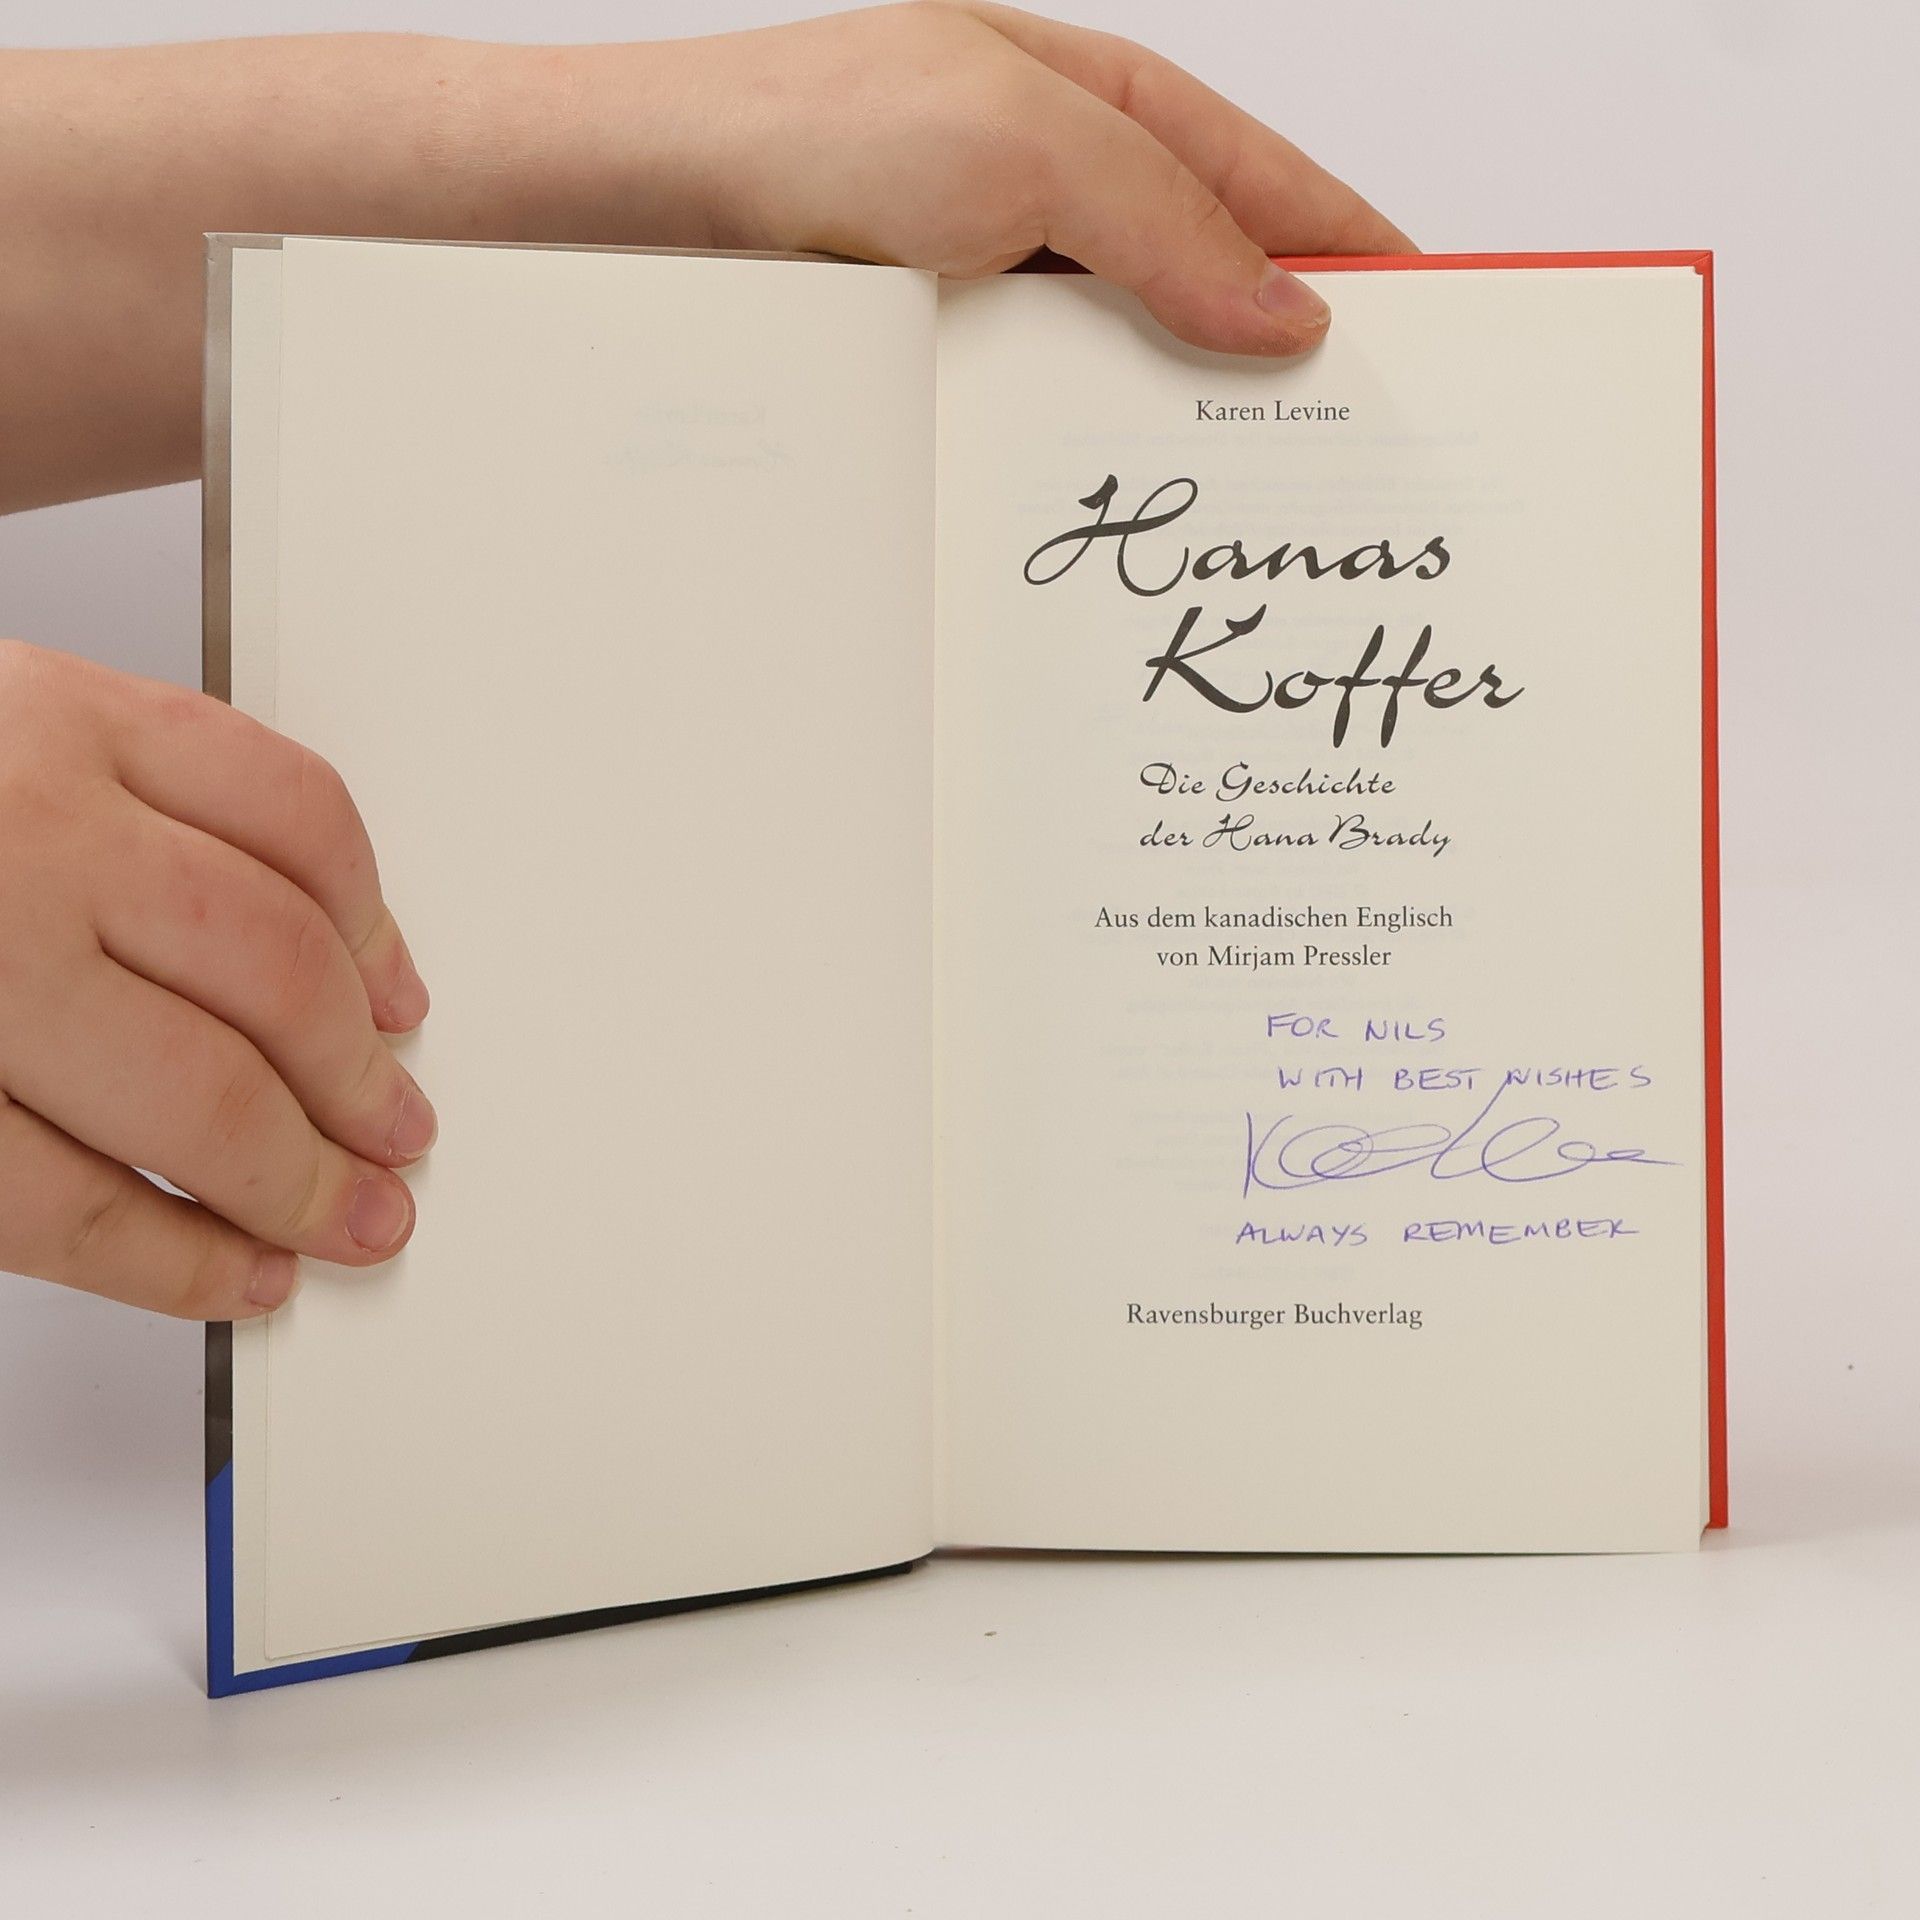 Karen Levine
Hanas
Koffer
Die Geschichte
der Hana Brady
Aus dem kanadischen Englisch
von Mirjam Pressler
FOR NILS
WITH BEST WISHES
ALWAYS REMEMBER
Ravensburger Buchverlag